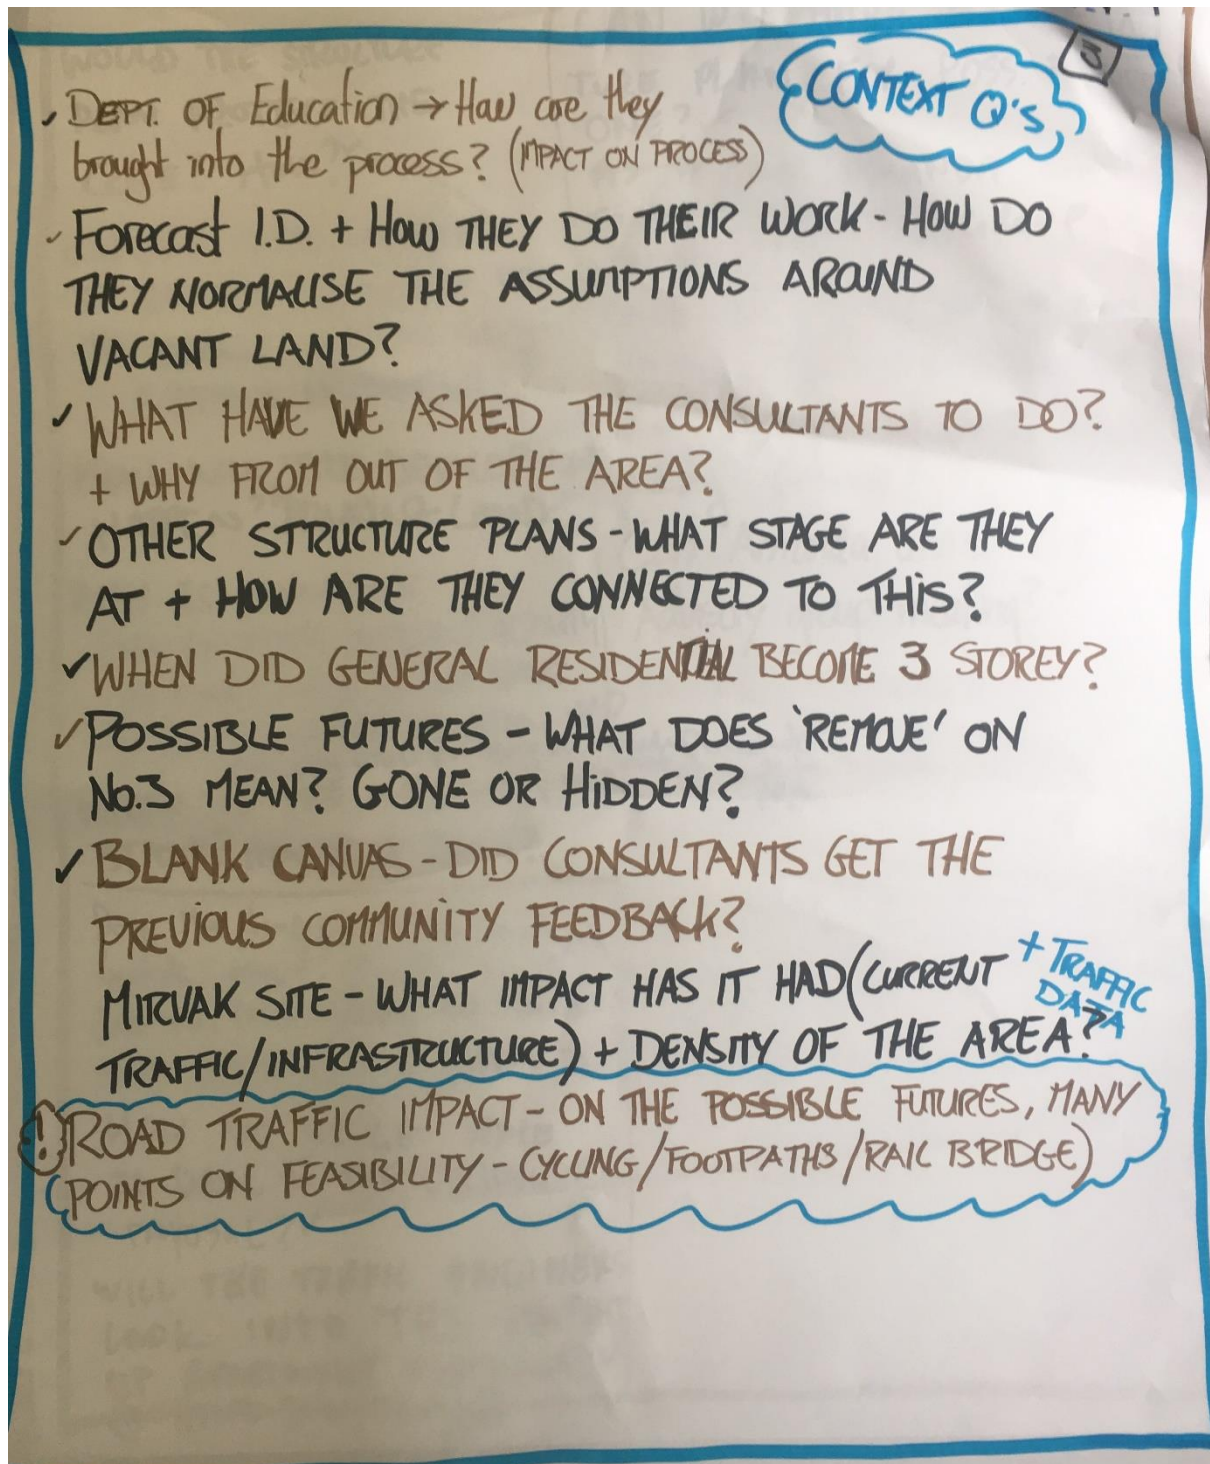 CONTEXT Q's
✓ DEPT. OF Education → How are they
brought into the process? (IMPACT ON PROCESS)
✓ Forecast I.D. + How THEY DO THEIR WORK - HOW DO
THEY NORMALISE THE ASSUMPTIONS AROUND
VACANT LAND?
✓ WHAT HAVE WE ASKED THE CONSULTANTS TO DO?
+ WHY FROM OUT OF THE AREA?
✓ OTHER STRUCTURE PLANS - WHAT STAGE ARE THEY
AT + HOW ARE THEY CONNECTED TO THiS?
✓ WHEN DID GENERAL RESIDENTIAL BECOME 3 STOREY?
✓ POSSIBLE FUTURES - WHAT DOES 'REMOVE' ON
No.3 MEAN? GONE OR HiDDEN?
✓ BLANK CANVAS - DID CONSULTANTS GET THE
PREViOUS COMMUNITY FEEDBACK?
MIRVAK SITE - WHAT IMPACT HAS IT HAD (CURRENT
+ TRAFFIC
DATA
TRAFFIC/INFRASTRUCTURE) + DENSITY OF THE AREA?
! ROAD TRAFFIC IMPACT - ON THE POSSIBLE FUTURES, MANY
(POINTS ON FEASIBILITY - CYCLING/FOOTPATHS/RAIL BRIDGE)